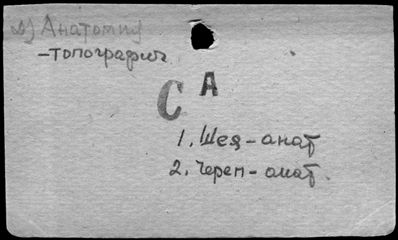 д) Анатомия
-топографич
С А
1. Шея-анат
2. Череп-анат.